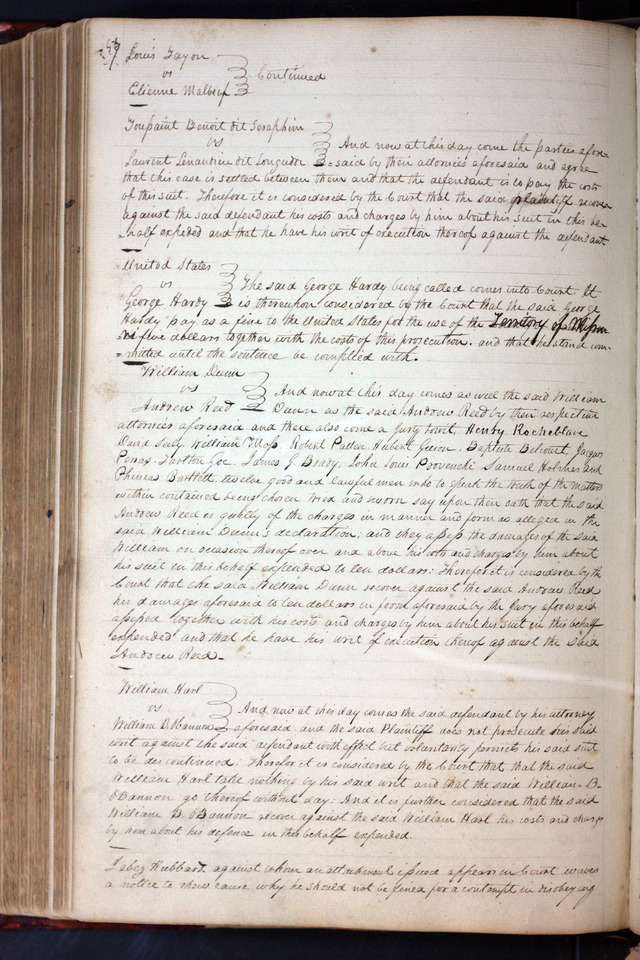 Louis Tayon
vs
Continued
Etienne Malbeuf
Toussaint Benoit dit Seraphim
vs
And now at this day come the parties afore-
Laurent dit said by their attornies aforesaid and agree
that this case is settled between them and that the defendant is to pay the costs
of this suit. Therefore it is considered by the Court that the said plaintiff recover
against the said defendant his costs and charges by him about his suit in this be-
-half expeded and that he have his writ of execution thereof against the defendant
United States
vs
The said George Hardy being called comes into Court. It
George Hardy is thereupon considered by the Court that the said George
Hardy pay as a fine to the United States for the use of the Territory of Missou
-ri five dollars together with the costs of this prosecution. and that he stand com-
-mitted until the sentence be complied with.
William Dunn
vs
And now at this day comes as well the said William
Andrew Reed Dunn as the said Andrew Reed by their respective
attornies aforesaid and there also come a jury towit, Henry Rocheblave
David William Moss, Robert Patten Hubert Guion, Baptiste Belcourt, Jaques
Tarlton Goe, James G Brady, John Louis Samuel Holmes and
Phineas Bartlett twelve good and lawful men who to speak the truth of the matters
within contained being chosen tried and sworn say upon their oath that the said
Andrew Reed is guilty of the charges in manner and form as alleged in the
said William Dunn's declaration; and they assess the damages of the said
William on occasion thereof over and above his costs and charges by him about
his suit in this behalf expended to ten dollars: Therefore it is considered by the
Court that the said William Dunn recover against the said Andrew Reed
his damages aforesaid to ten dollars in form aforesaid by the Jury aforesaid
assessed together with his costs and charges by him about his suit in this behalf
expended and that he have his writ of execution thereof against the said
Andrew Reed.
William Harl
vs
And now at this day comes the said defendant by his attorney
William D. OBannon aforesaid and the said Plaintiff does not prosecute his said
writ against the said defendant with effect but voluntarily permits his said suit
to be discontinued. Therefore it is considered by the Court that that the said
William Harl take nothing by his said writ and that the said William B.
oBannon go thereof without day: And it is further considered that the said
William D. oBannon recover against the said William Harl his costs and charges
by him about his defence in this behalf expended.
Jabez Hubbard. against whom an attachment issued appears in Court waves
a notice to shew cause why he should not be fined for a contempt in disobeying